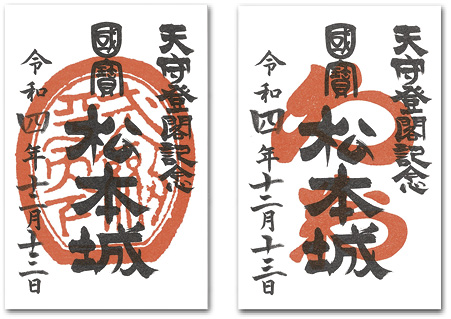 天守登閣記念
國寶
松本城
令和四年十二月十三日
天守登閣記念
國寶
松本城
令和四年十二月十三日